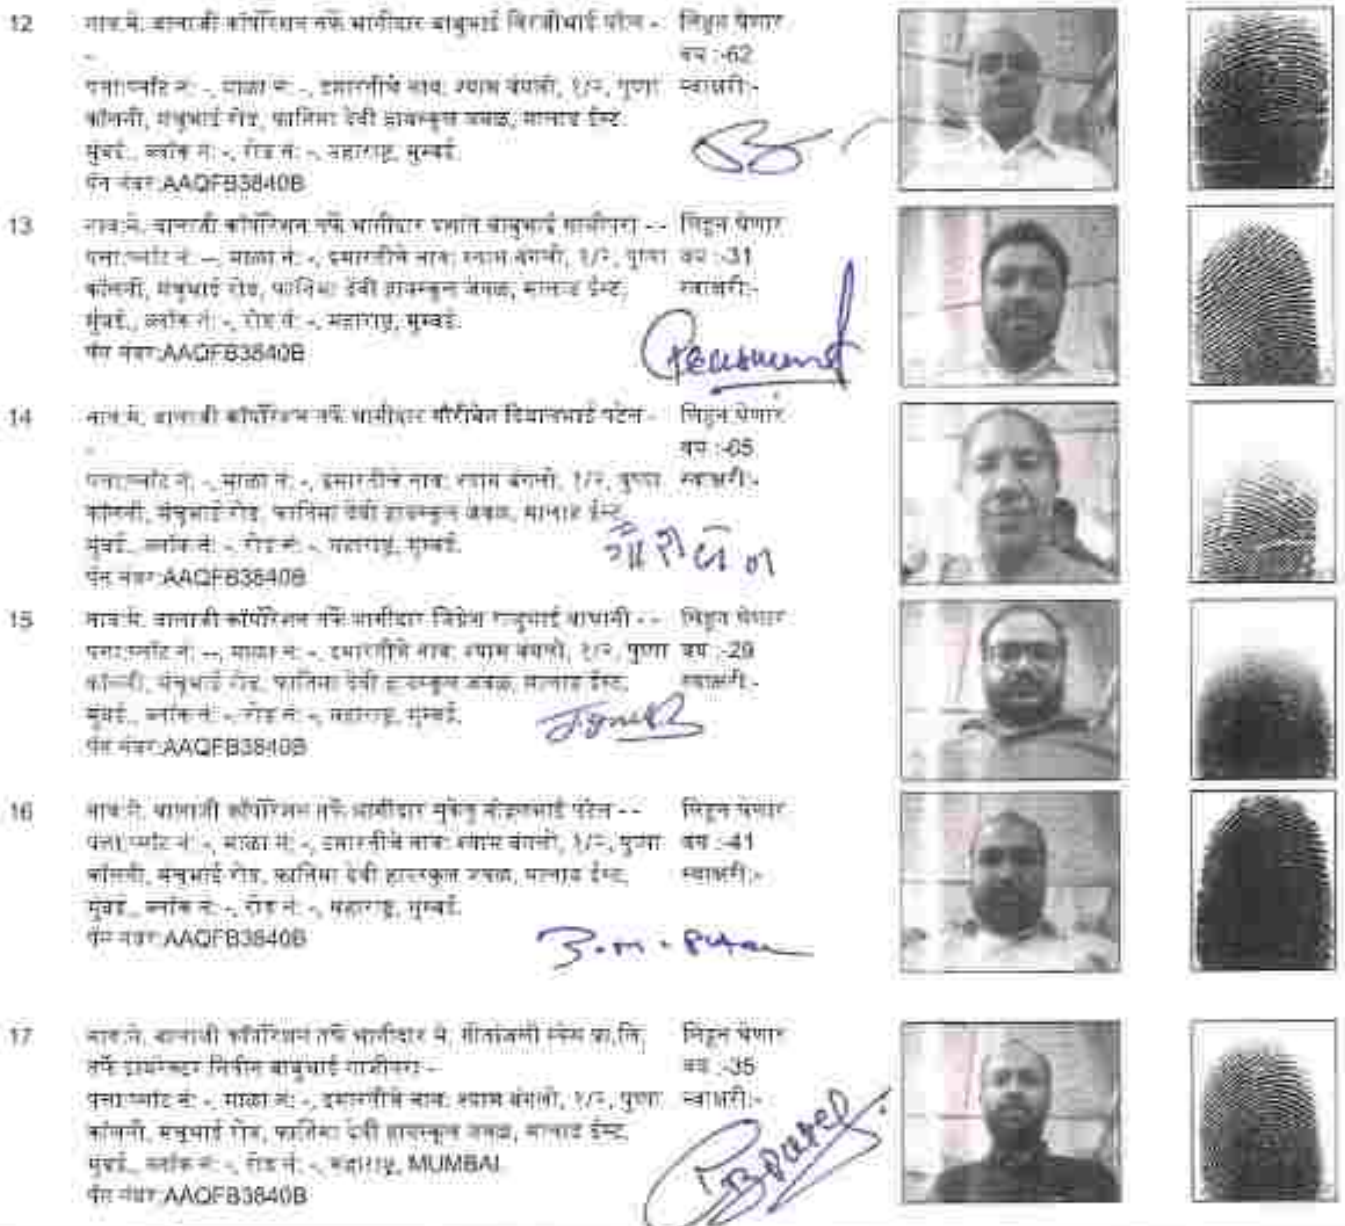 12 नाव:मे. बालाजी कॉर्पोरेशन तर्फे भागीदार बाबुभाई विरजीभाई पटेल - लिहून घेणार
- वय :-62
पत्ता:प्लॉट नं: -, माळा नं: -, इमारतीचे नाव: श्याम बंगलो, १/२, पुष्पा स्वाक्षरी:-
कॉलनी, मंचुभाई रोड, फातिमा देवी हायस्कूल जवळ, मालाड ईस्ट,
मुंबई., ब्लॉक नं: -, रोड नं: -, महाराष्ट्र, मुम्बई.
पॅन नंबर:AAQFB3840B
13 नाव:मे. बालाजी कॉर्पोरेशन तर्फे भागीदार प्रशांत बाबुभाई गाजीपरा -- लिहून घेणार
पत्ता:प्लॉट नं: --, माळा नं: -, इमारतीचे नाव: श्याम बंगलो, १/२, पुष्पा वय :-31
कॉलनी, मंचुभाई रोड, फातिमा देवी हायस्कूल जवळ, मालाड ईस्ट, स्वाक्षरी:-
मुंबई., ब्लॉक नं: -, रोड नं: -, महाराष्ट्र, मुम्बई.
पॅन नंबर:AAQFB3840B
14 नाव:मे. बालाजी कॉर्पोरेशन तर्फे भागीदार गौरीबेन पटेल - लिहून घेणार
- वय :-65
पत्ता:प्लॉट नं: -, माळा नं: -, इमारतीचे नाव: श्याम बंगलो, १/२, पुष्पा स्वाक्षरी:-
कॉलनी, मंचुभाई रोड, फातिमा देवी हायस्कूल जवळ, मालाड ईस्ट,
मुंबई., ब्लॉक नं: -, रोड नं: -, महाराष्ट्र, मुम्बई.
ગૌરીબેન
पॅन नंबर:AAQFB3840B
15 नाव:मे. बालाजी कॉर्पोरेशन तर्फे भागीदार जिग्नेश -- लिहून घेणार
पत्ता:प्लॉट नं: --, माळा नं: -, इमारतीचे नाव: श्याम बंगलो, १/२, पुष्पा वय :-29
कॉलनी, मंचुभाई रोड, फातिमा देवी हायस्कूल जवळ, मालाड ईस्ट, स्वाक्षरी:-
मुंबई., ब्लॉक नं: -, रोड नं: -, महाराष्ट्र, मुम्बई.
पॅन नंबर:AAQFB3840B
16 नाव:मे. बालाजी कॉर्पोरेशन तर्फे भागीदार पटेल -- लिहून घेणार
पत्ता:प्लॉट नं: -, माळा नं: -, इमारतीचे नाव: श्याम बंगलो, १/२, पुष्पा वय :-41
कॉलनी, मंचुभाई रोड, फातिमा देवी हायस्कूल जवळ, मालाड ईस्ट, स्वाक्षरी:-
मुंबई., ब्लॉक नं: -, रोड नं: -, महाराष्ट्र, मुम्बई.
पॅन नंबर:AAQFB3840B
17 नाव:मे. बालाजी कॉर्पोरेशन तर्फे भागीदार मे. गीतांजली स्पेस प्रा.लि. लिहून घेणार
तर्फे डायरेक्टर बाबुभाई गाजीपरा - वय :-35
पत्ता:प्लॉट नं: -, माळा नं: -, इमारतीचे नाव: श्याम बंगलो, १/२, पुष्पा स्वाक्षरी:-
कॉलनी, मंचुभाई रोड, फातिमा देवी हायस्कूल जवळ, मालाड ईस्ट,
मुंबई., ब्लॉक नं: -, रोड नं: -, महाराष्ट्र, MUMBAI.
पॅन नंबर:AAQFB3840B